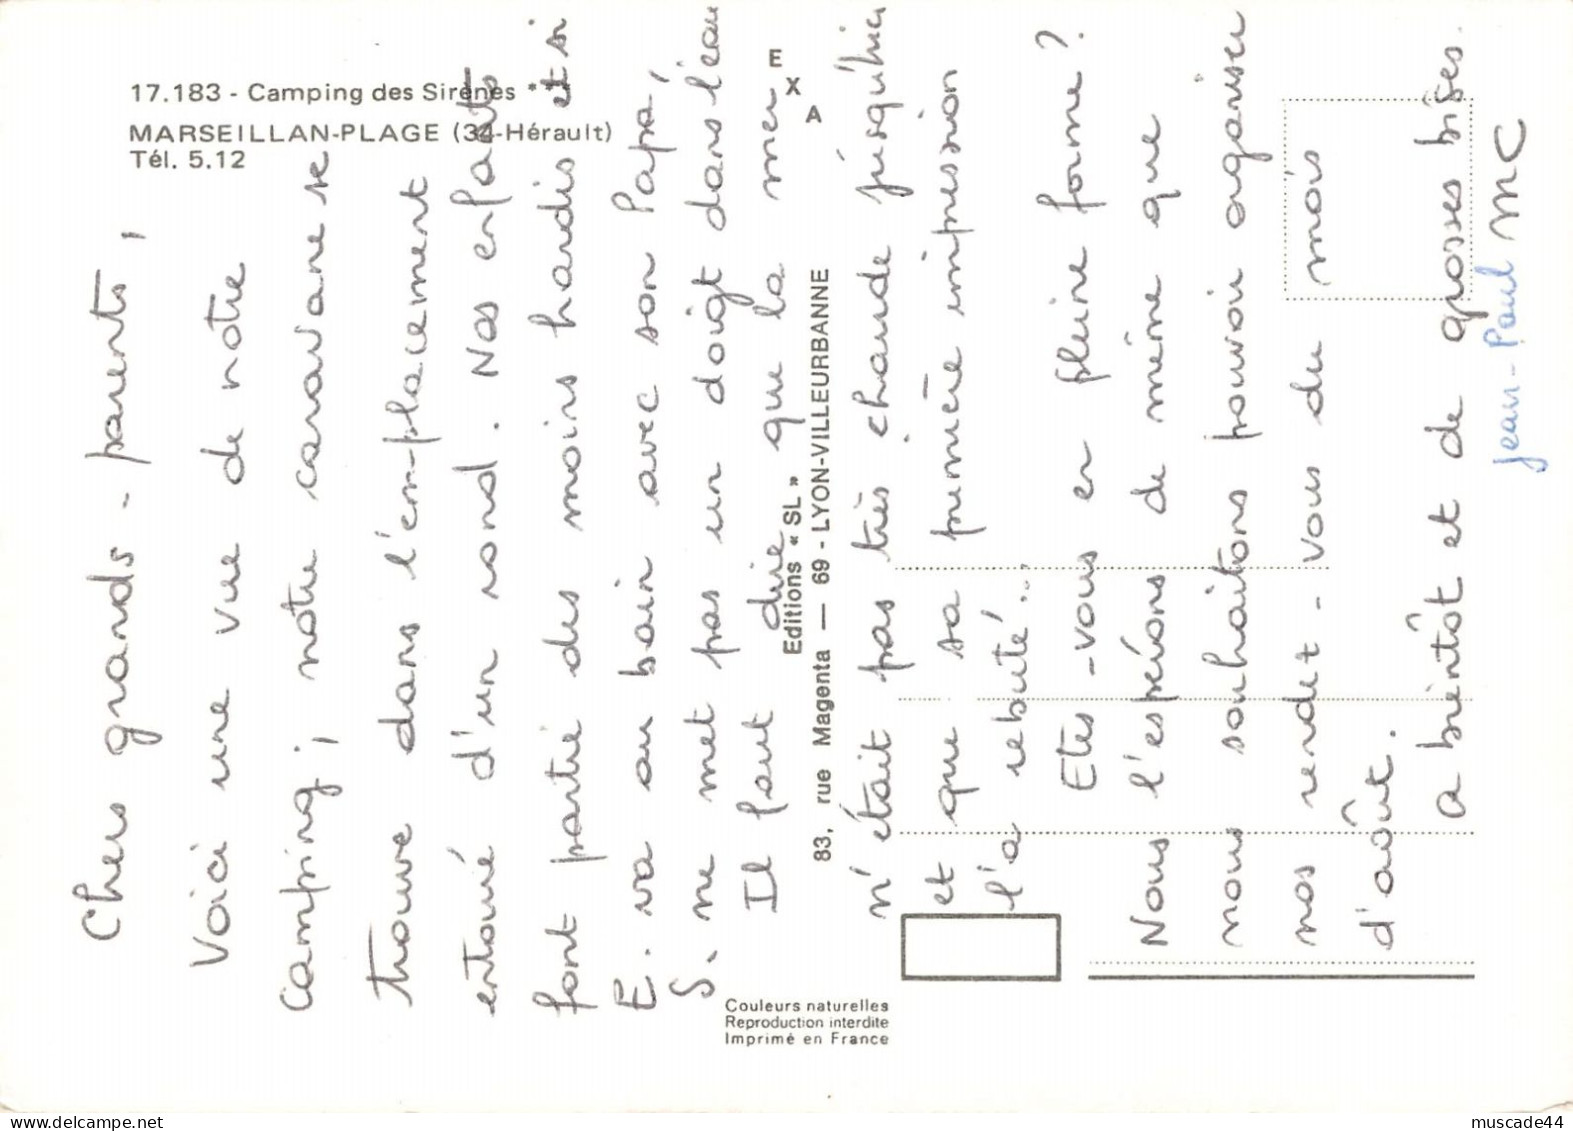 17.183 - Camping des Sirènes ***
MARSEILLAN-PLAGE (34-Hérault)
Tél. 5.12
Chers grands-parents,
Voici une vue de notre
camping ; notre caravane se
trouve dans l'emplacement
entouré d'un rond. Nos enfants
font partie des moins hardis et si
E. va au bain avec son Papa,
S. ne met pas un doigt dans l'eau
Il faut dire que la mer
n'était pas très chaude jusqu'hier
et que sa première impression
l'a rebuté...
Etes-vous en pleine forme ?
Nous l'espérons de même que
nous souhaitons pouvoir organiser
nos rendez-vous du mois
d'août.
A bientôt et de grosses bises.
Jean-Paul MC
EXA
Editions « SL »
83, rue Magenta — 69 - LYON-VILLEURBANNE
Couleurs naturelles
Reproduction interdite
Imprimé en France
muscade44